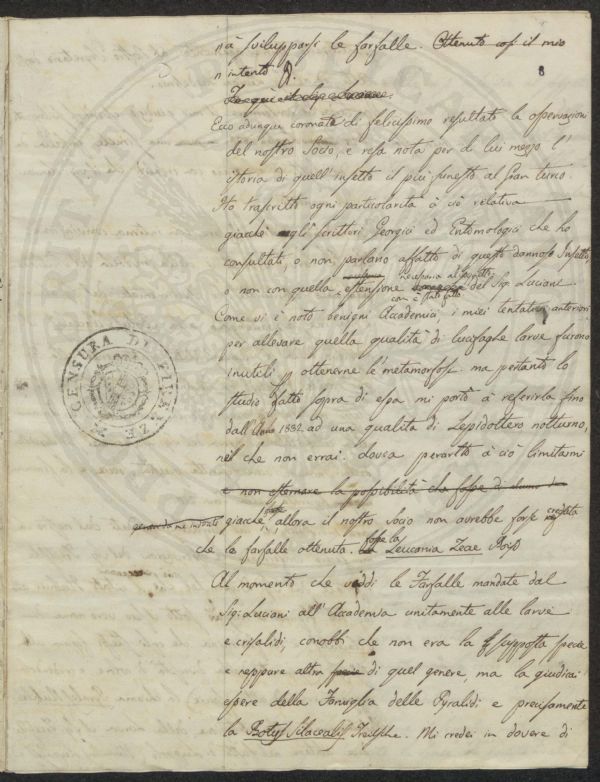 si à svilupparsi le farfalle. Ottenuto così il mio
intento
8
Ecco adunque coronate di felicissimo resultato le osservazioni
del nostro Socio, e resa nota per di lui mezzo l'
istoria di quell'insetto il più funesto al Gran turco.
Ho trascritto ogni particolarità a ciò relativa
giacchè gli scrittori Georgici ed Entomologia che ho
consultati, o non parlano affatto di questo dannoso Insetto,
o non con quella estensione necessaria al soggetto
con è stato fatto del Sig. Luciani.
Come vi è noto benigni Accademici, i miei tentativi anteriori
per allevare quella qualità di lucifaghe larve furono
inutili p ottenerne le metamorfosi ma pertanto lo
studio fatto sopra di essa mi portò a referirla fino
dall'Anno 1832 ad una qualità di Lepidottero notturno,
nel che non errai. dovea peraltro a ciò limitarmi
e non esternare la possibilità che fosse di
giacchè forse allora il nostro Socio non avrebbe forse creduta
che la farfalla ottenuta fosse la Leucania Zeae
Al momento che viddi le Farfalle mandate dal
Sig: Luciani all'Accademia unitamente alle larve
e crisalidi, conobbi che non era la supposta specie
e neppure altra specie di quel genere, ma la giudicai
essere della Famiglia delle Pyralidi e precisamente
la Botys Silacealis Treitschke. Mi credei in dovere di
CENSURA DI FIRENZE